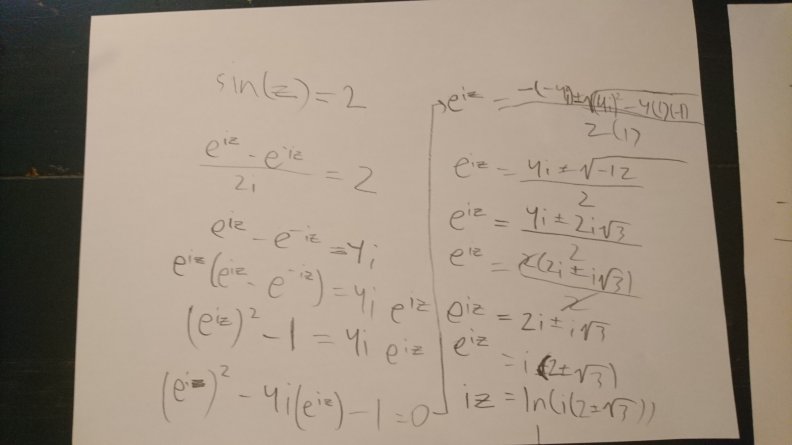 sin(z) = 2
(e^{iz} - e^{iz})/(2i) = 2
e^{iz} - e^{-iz} = 4i
e^{iz}(e^{iz} - e^{-iz}) = 4i e^{iz}
(e^{iz})^2 - 1 = 4i e^{iz}
(e^{iz})^2 - 4i(e^{iz}) - 1 = 0
e^{iz} = (-(-4i) ± √((4i)^2 - 4(1)(-1)))/(2(1))
e^{iz} = (4i ± √-12)/2
e^{iz} = (4i ± 2i√3)/2
e^{iz} = 2(2i ± i√3)/2
e^{iz} = 2i ± i√3
e^{iz} = i(2 ± √3)
iz = ln(i(2 ± √3))